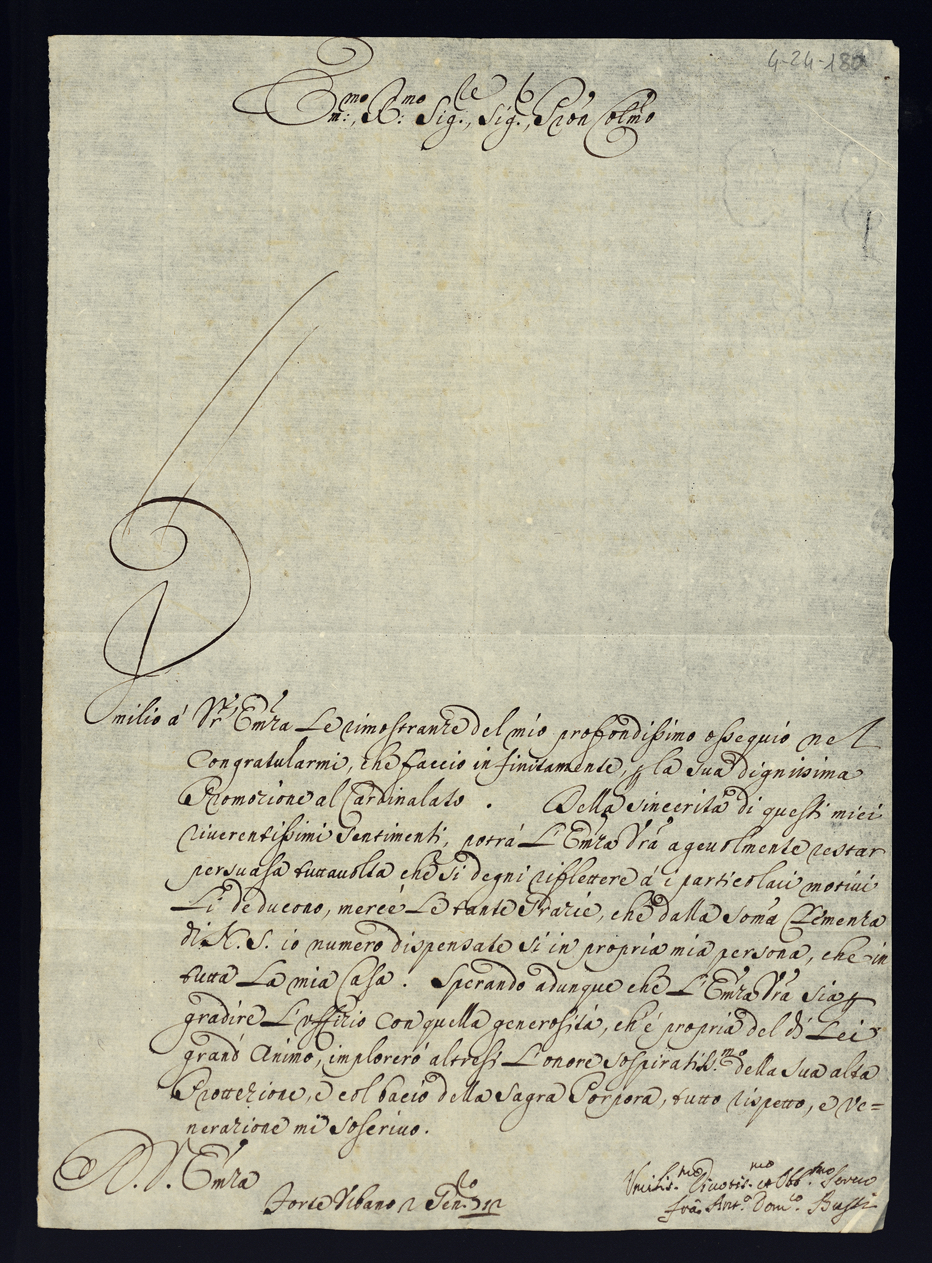 4-24-180
Em:mo, R:mo Sig.re, Sig.r, Pron Colmo
Umilio á Vrã Emza le rimostranze del mio profondissimo ossequio nel
Congratularmi, che faccio infinitamente, p la sua dignissima
Promozione al Cardinalato. Della sincerità di questi miei
riverentissimi sentimenti, potrá L'Emza Vrã agevolmente restar
persuasa tuttavolta che si degni riflettere á i particolari motivi
Li deducono, mercé Le tante Grazie, che dalla soma Clemenza
di N. S. io numero dispensate si in propria mia persona, che in
tutta La mia Casa. Sperando adunque che L'Emza Vrã sia p
gradire L'uffizio con quella generosità, ch'é propria del di Lei
grand'Animo, imploreró altresi L'onore sospiratiss.mo della sua alta
Prottezione, e col bacio della Sagra Porpora, tutto rispetto, e ve=
nerazione mi soscrivo.
D. V. Emza
Forte Urbano 2 Gen.ro
Umilis.mo Divotis.mo et Obb.mo Servo
frã Ant.o Dom.co Bussi